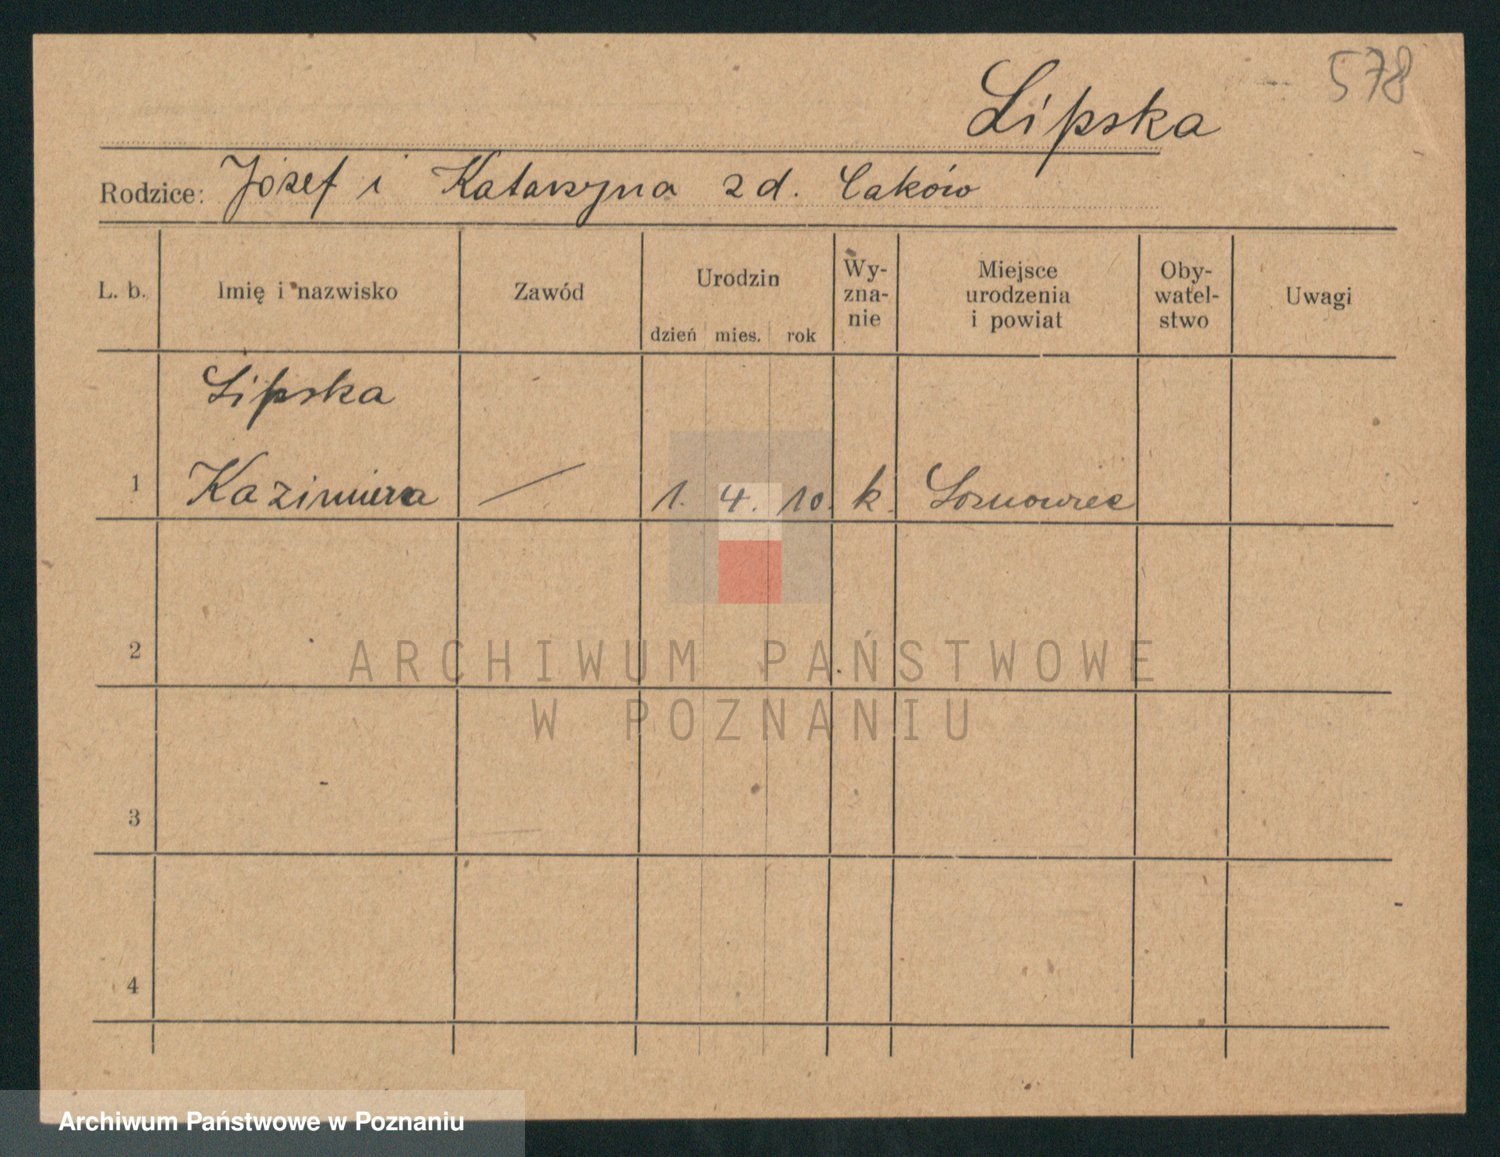 578
Lipska
Rodzice: Józef i Katarzyna z d. Caków
L. b.
Imię i nazwisko
Zawód
Urodzin
dzień mies. rok
Wy-
zna-
nie
Miejsce
urodzenia
i powiat
Oby-
watel-
stwo
Uwagi
Lipska
1 Kazimiera — 1. 4. 10. k. Sosnowiec
2
ARCHIWUM PAŃSTWOWE
W POZNANIU
3
4
Archiwum Państwowe w Poznaniu